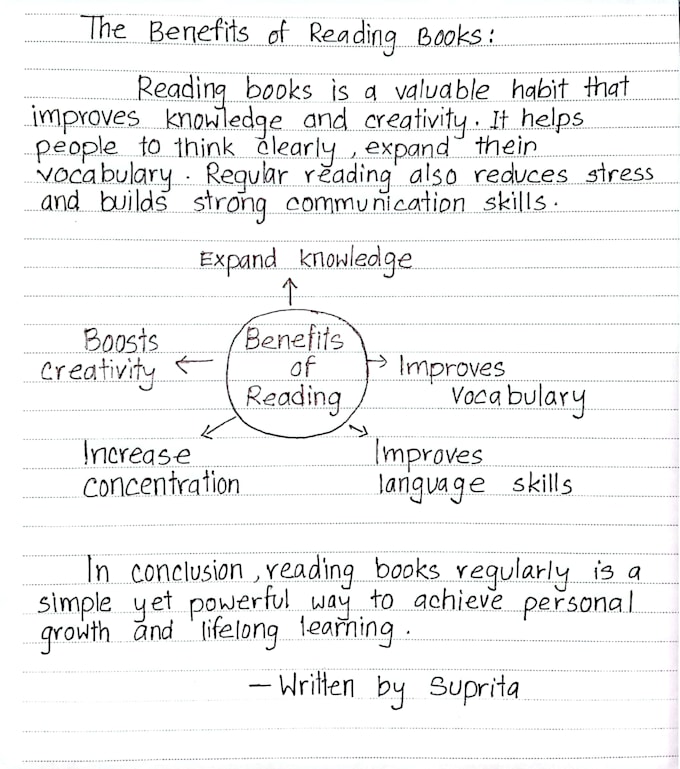 The Benefits of Reading Books:
Reading books is a valuable habit that
improves knowledge and creativity. It helps
people to think clearly, expand their
vocabulary. Regular reading also reduces stress
and builds strong communication skills.
Expand knowledge
Boosts
creativity
Benefits
of
Reading
Improves
vocabulary
Increase
concentration
Improves
language skills
In conclusion, reading books regularly is a
simple yet powerful way to achieve personal
growth and lifelong learning.
— Written by Suprita